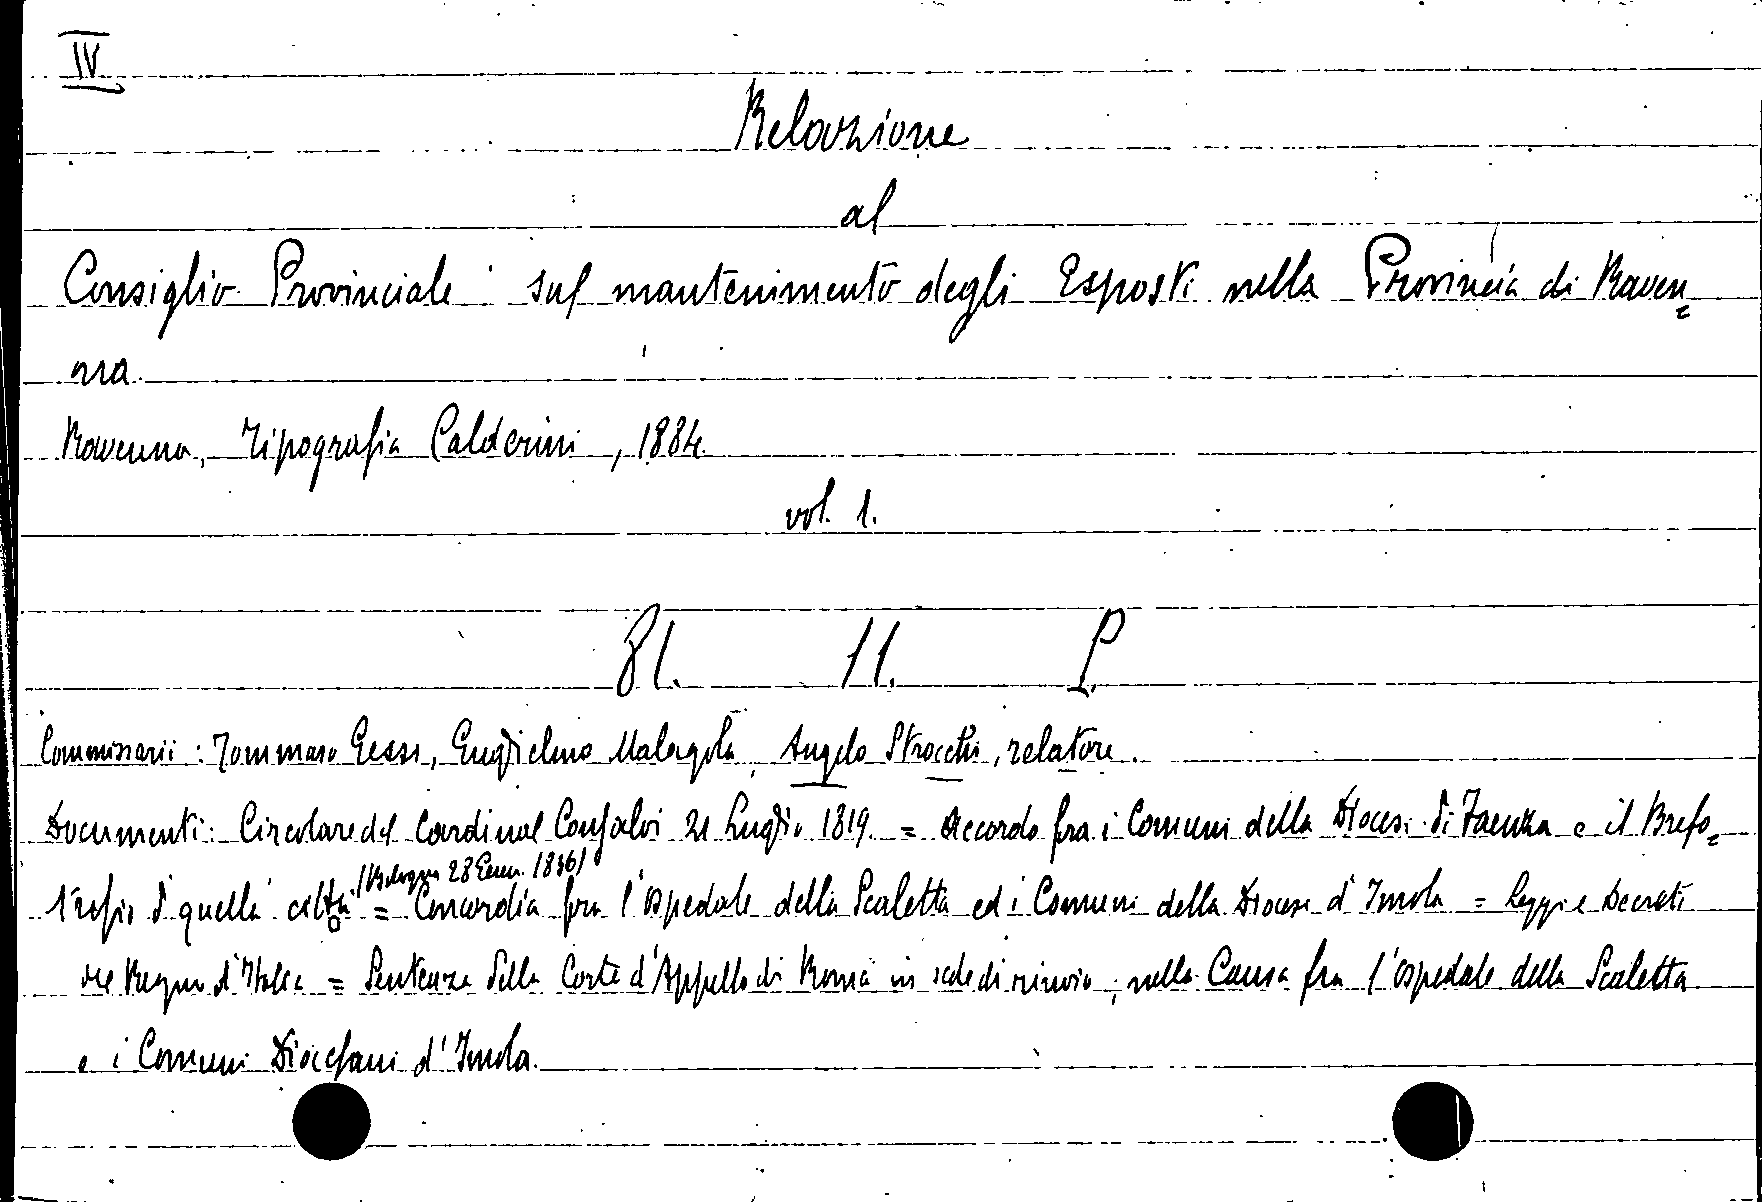 IV
Relazione
al
Consiglio Provinciale sul mantenimento degli Esposti nella Provincia di Raven=
na.
Ravenna, Tipografia Calderini, 1884.
vol. 1.
81. 11. P.
Commissarii: Tommaso Gessi, Guglielmo Malagola, Angelo Strocchi, relatore.
Documenti: Circolare del Cardinal Consalvi 21 Luglio 1819. = Accordo fra i Comuni della Diocesi di Faenza e il Brefo=
(Bologna 28 Genn. 1836)
trofio di quella città = Concordia fra l'ospedale della Scaletta ed i Comuni della Diocesi d'Imola = Leggi e Decreti
Regno d'Italia = Sentenza della Corte d'Appello di Roma in sede di rinvio, nella Causa fra l'ospedale della Scaletta
e i Comuni Diocesani d'Imola.